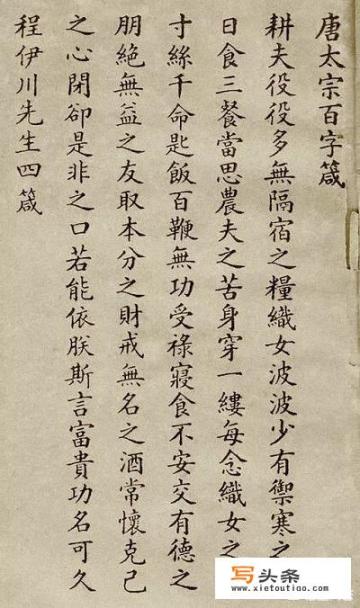 唐太宗百字箴
耕夫役役多無隔宿之糧織女波波少有禦寒之
日食三餐當思農夫之苦身穿一縷每念織女之
寸絲千命匙飯百鞭無功受祿寢食不安交有德之
朋絕無益之友取本分之財戒無名之酒常懷克己
之心閉卻是非之口若能依朕斯言富貴功名可久
程伊川先生四箴
写头条
www.xietoutiao.com